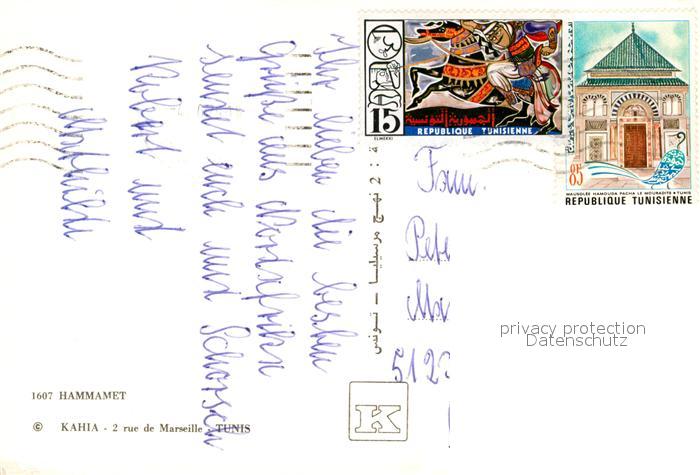 Ihr Lieben die besten
Grüße aus Nordafrika
sendet euch
und
Robert und
Mathilde
Fam.
512
15
الجمهورية التونسية
REPUBLIQUE TUNISIENNE
ELMEKKI
85
MAUSOLÉE HAMOUDA PACHA LE MOURADITE • TUNIS
REPUBLIQUE TUNISIENNE
2 : نهج مرسيليا — تونس
privacy protection
Datenschutz
1607 HAMMAMET
© KAHIA - 2 rue de Marseille - TUNIS
K